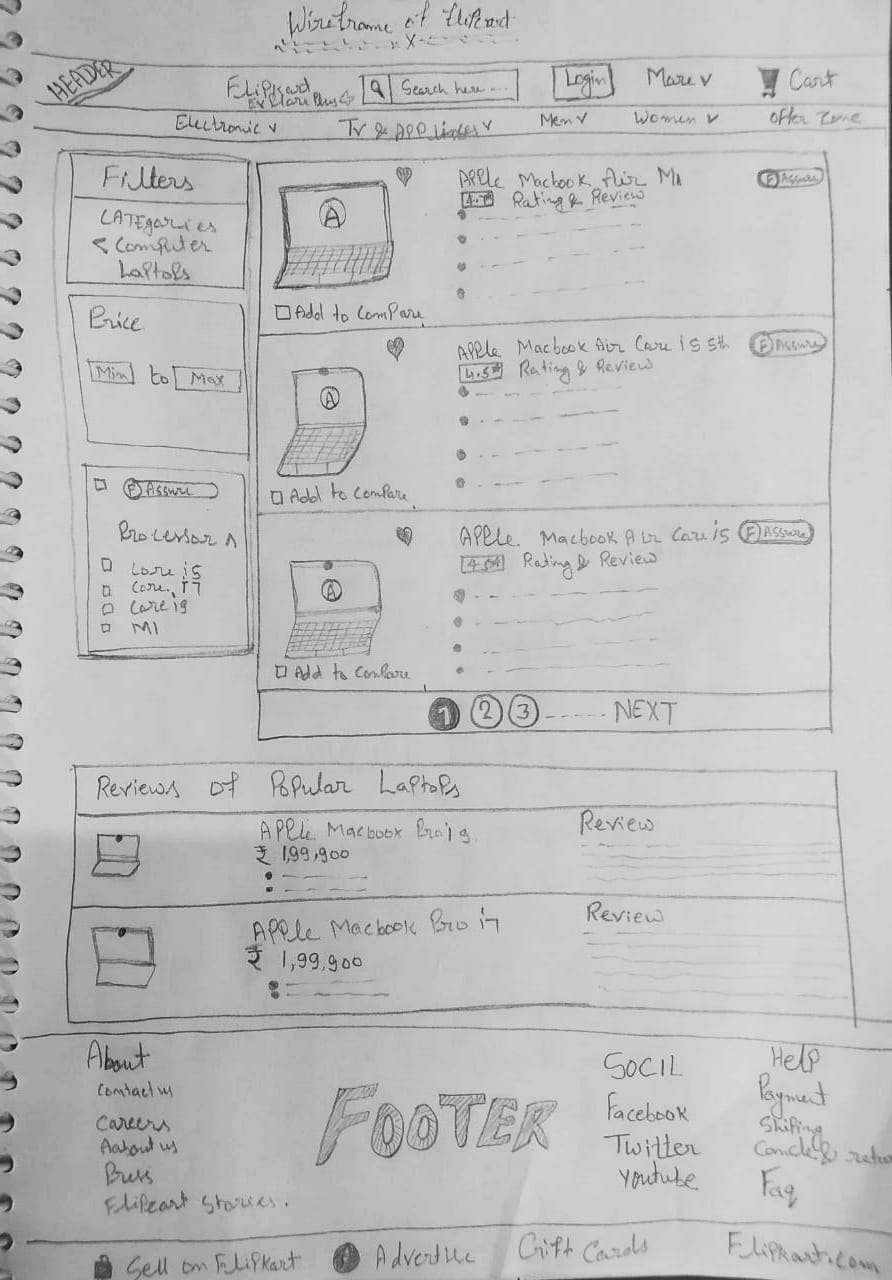 Wireframe of Flipcart
x
HEADER
Flipkard
Explore Plus
Search here...
Login
More v
Cart
Electronic v
TV & APPliances v
Men v
Women v
offer Zone
Filters
CATEgories
< Computer
Laptops
Price
Min to Max
F Assure
Processor ^
Core i5
Core i7
Core i9
M1
A
APPle Macbook Air M1
F Assure
4.7
Rating & Review
Add to ComPare
A
APPle Macbook Air Core i5 5th
F Assure
4.5
Rating & Review
Add to ComPare
A
APPle. Macbook Air Core i5
F Assure
Rating & Review
Add to ComPare
1 2 3 ----- NEXT
Reviews of Popular Laptops
APPle Macbook Pro i9
₹ 1,99,900
Review
APPle Macbook Pro i7
₹ 1,99,900
Review
About
Contact us
Careers
Aabout us
Press
Flipcart Stories.
FOOTER
SOCIL
Facebook
Twitter
Youtube
Help
Payment
Shiping
Faq
Sell on FliPkart
Advertise
Gift Cards
FliPkart.com